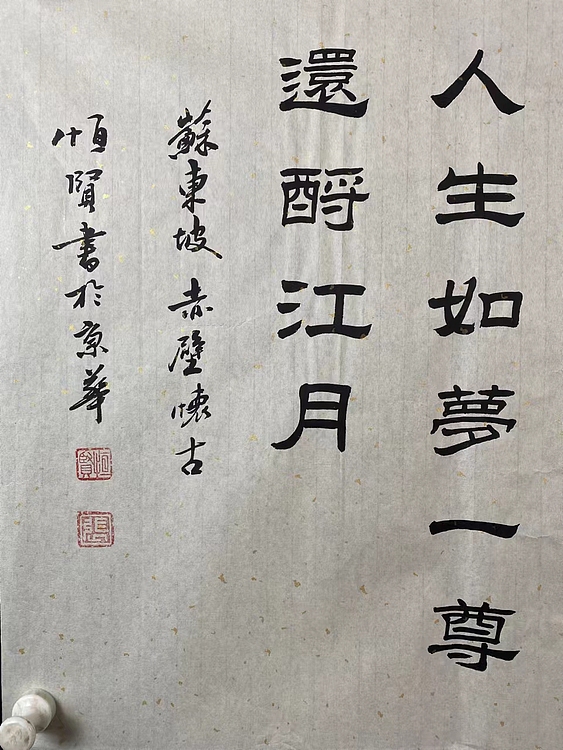 人生如夢一尊
還酹江月
蘇東坡 赤壁懷古
恒賢書於京華
恒賢
張